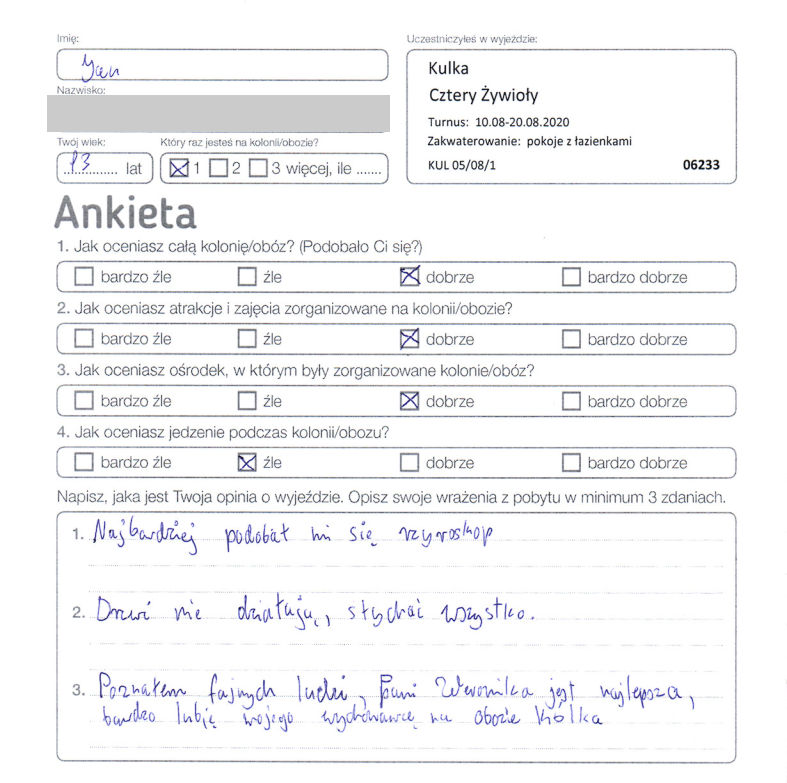 Imię:
Jan
Nazwisko:
Twój wiek:
Który raz jesteś na kolonii/obozie?
13 lat
1 2 3 więcej, ile .......
Uczestniczyłeś w wyjeździe:
Kulka
Cztery Żywioły
Turnus: 10.08-20.08.2020
Zakwaterowanie: pokoje z łazienkami
KUL 05/08/1 06233
Ankieta
1. Jak oceniasz całą kolonię/obóz? (Podobało Ci się?)
bardzo źle źle dobrze bardzo dobrze
2. Jak oceniasz atrakcje i zajęcia zorganizowane na kolonii/obozie?
bardzo źle źle dobrze bardzo dobrze
3. Jak oceniasz ośrodek, w którym były zorganizowane kolonie/obóz?
bardzo źle źle dobrze bardzo dobrze
4. Jak oceniasz jedzenie podczas kolonii/obozu?
bardzo źle źle dobrze bardzo dobrze
Napisz, jaka jest Twoja opinia o wyjeździe. Opisz swoje wrażenia z pobytu w minimum 3 zdaniach.
1. Najbardziej podobał mi się
2. Drzwi nie działają, słychać wszystko.
3. Poznałem fajnych ludzi, pani Weronika jest najlepsza,
bardzo lubię mojego wychowawcę na obozie kólka